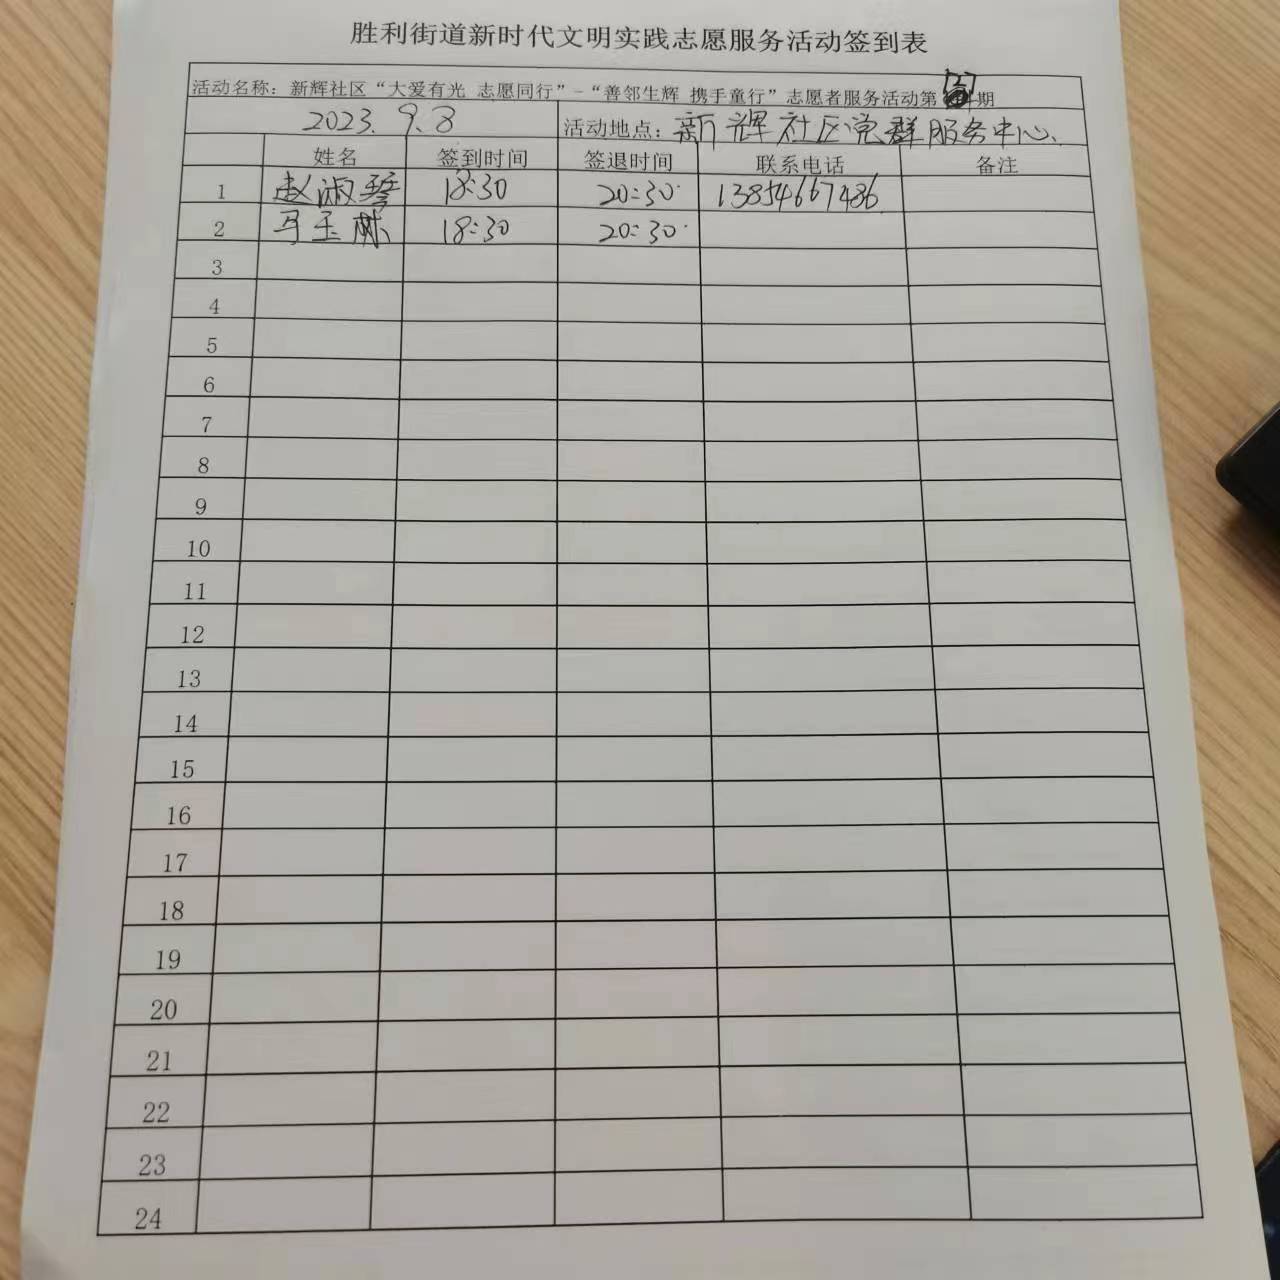 胜利街道新时代文明实践志愿服务活动签到表
活动名称：新辉社区“大爱有光 志愿同行”-“善邻生辉 携手童行”志愿者服务活动第期
2023.9.8 活动地点：新辉社区党群服务中心、
姓名 签到时间 签退时间 联系电话 备注
1 赵淑琴 18:30 20:30 13854667486
2 马玉 18:30 20:30
3
4
5
6
7
8
9
10
11
12
13
14
15
16
17
18
19
20
21
22
23
24